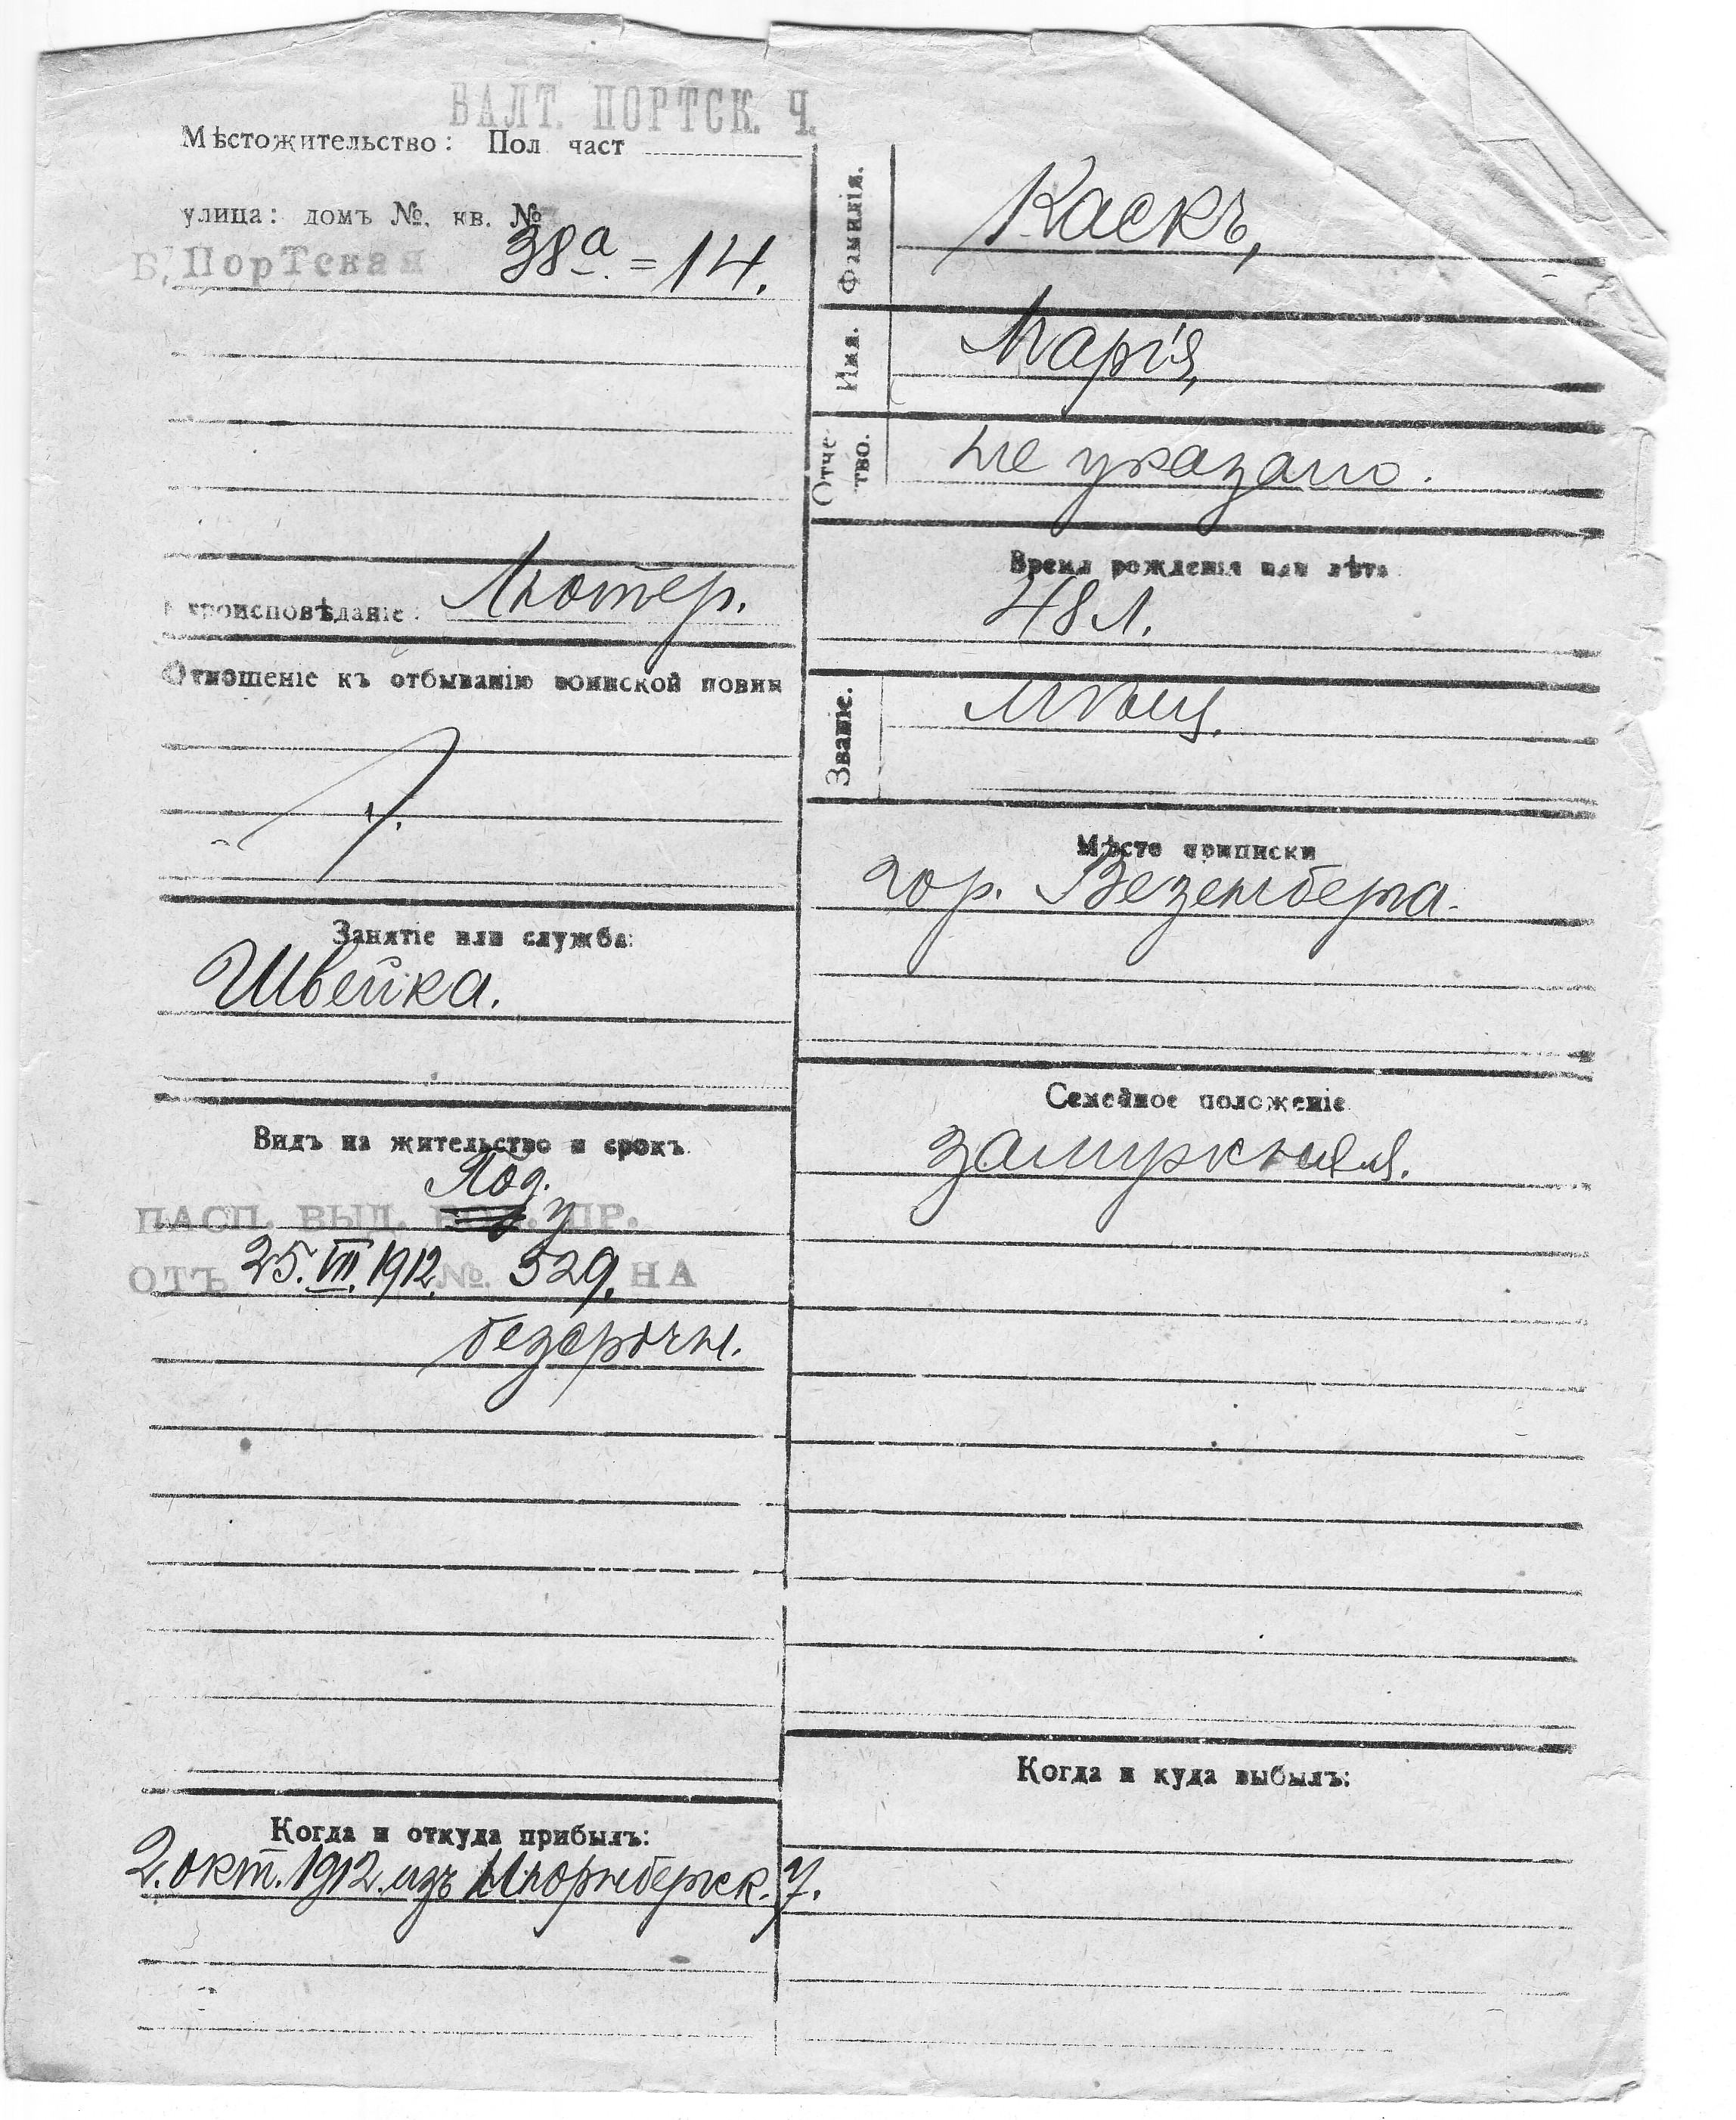 БАЛТ. ПОРТСК. Ч.
Мѣстожительство: Пол част
улица: домъ №. кв. №
Б. Портская 38а. = 14.
Фамилія.
Каскъ,
Имя.
Марія,
Отче
тво.
не указано.
Время рожденія или лѣта
48 л.
Званіе.
Мѣщ.
Мѣсто приписки
гор. Везенберга.
Семейное положеніе
замужняя.
Когда и куда выбылъ:
вроисповѣданіе: Лютер.
Отношеніе къ отбыванію воинской повин
Занятіе или служба:
Швейка.
Видъ на жительство и срокъ
Под.
ПАСП. ВЫД. У ПР.
ОТЪ 25. VII. 1912. №. 529. НА
безсрочн.
Когда и откуда прибылъ:
2. окт. 1912. изъ у.